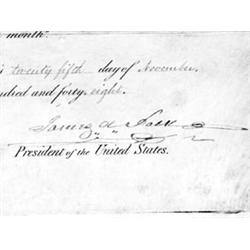 month."
twenty fifth day of November
ndred and forty eight.
James K Polk
President of the United States.